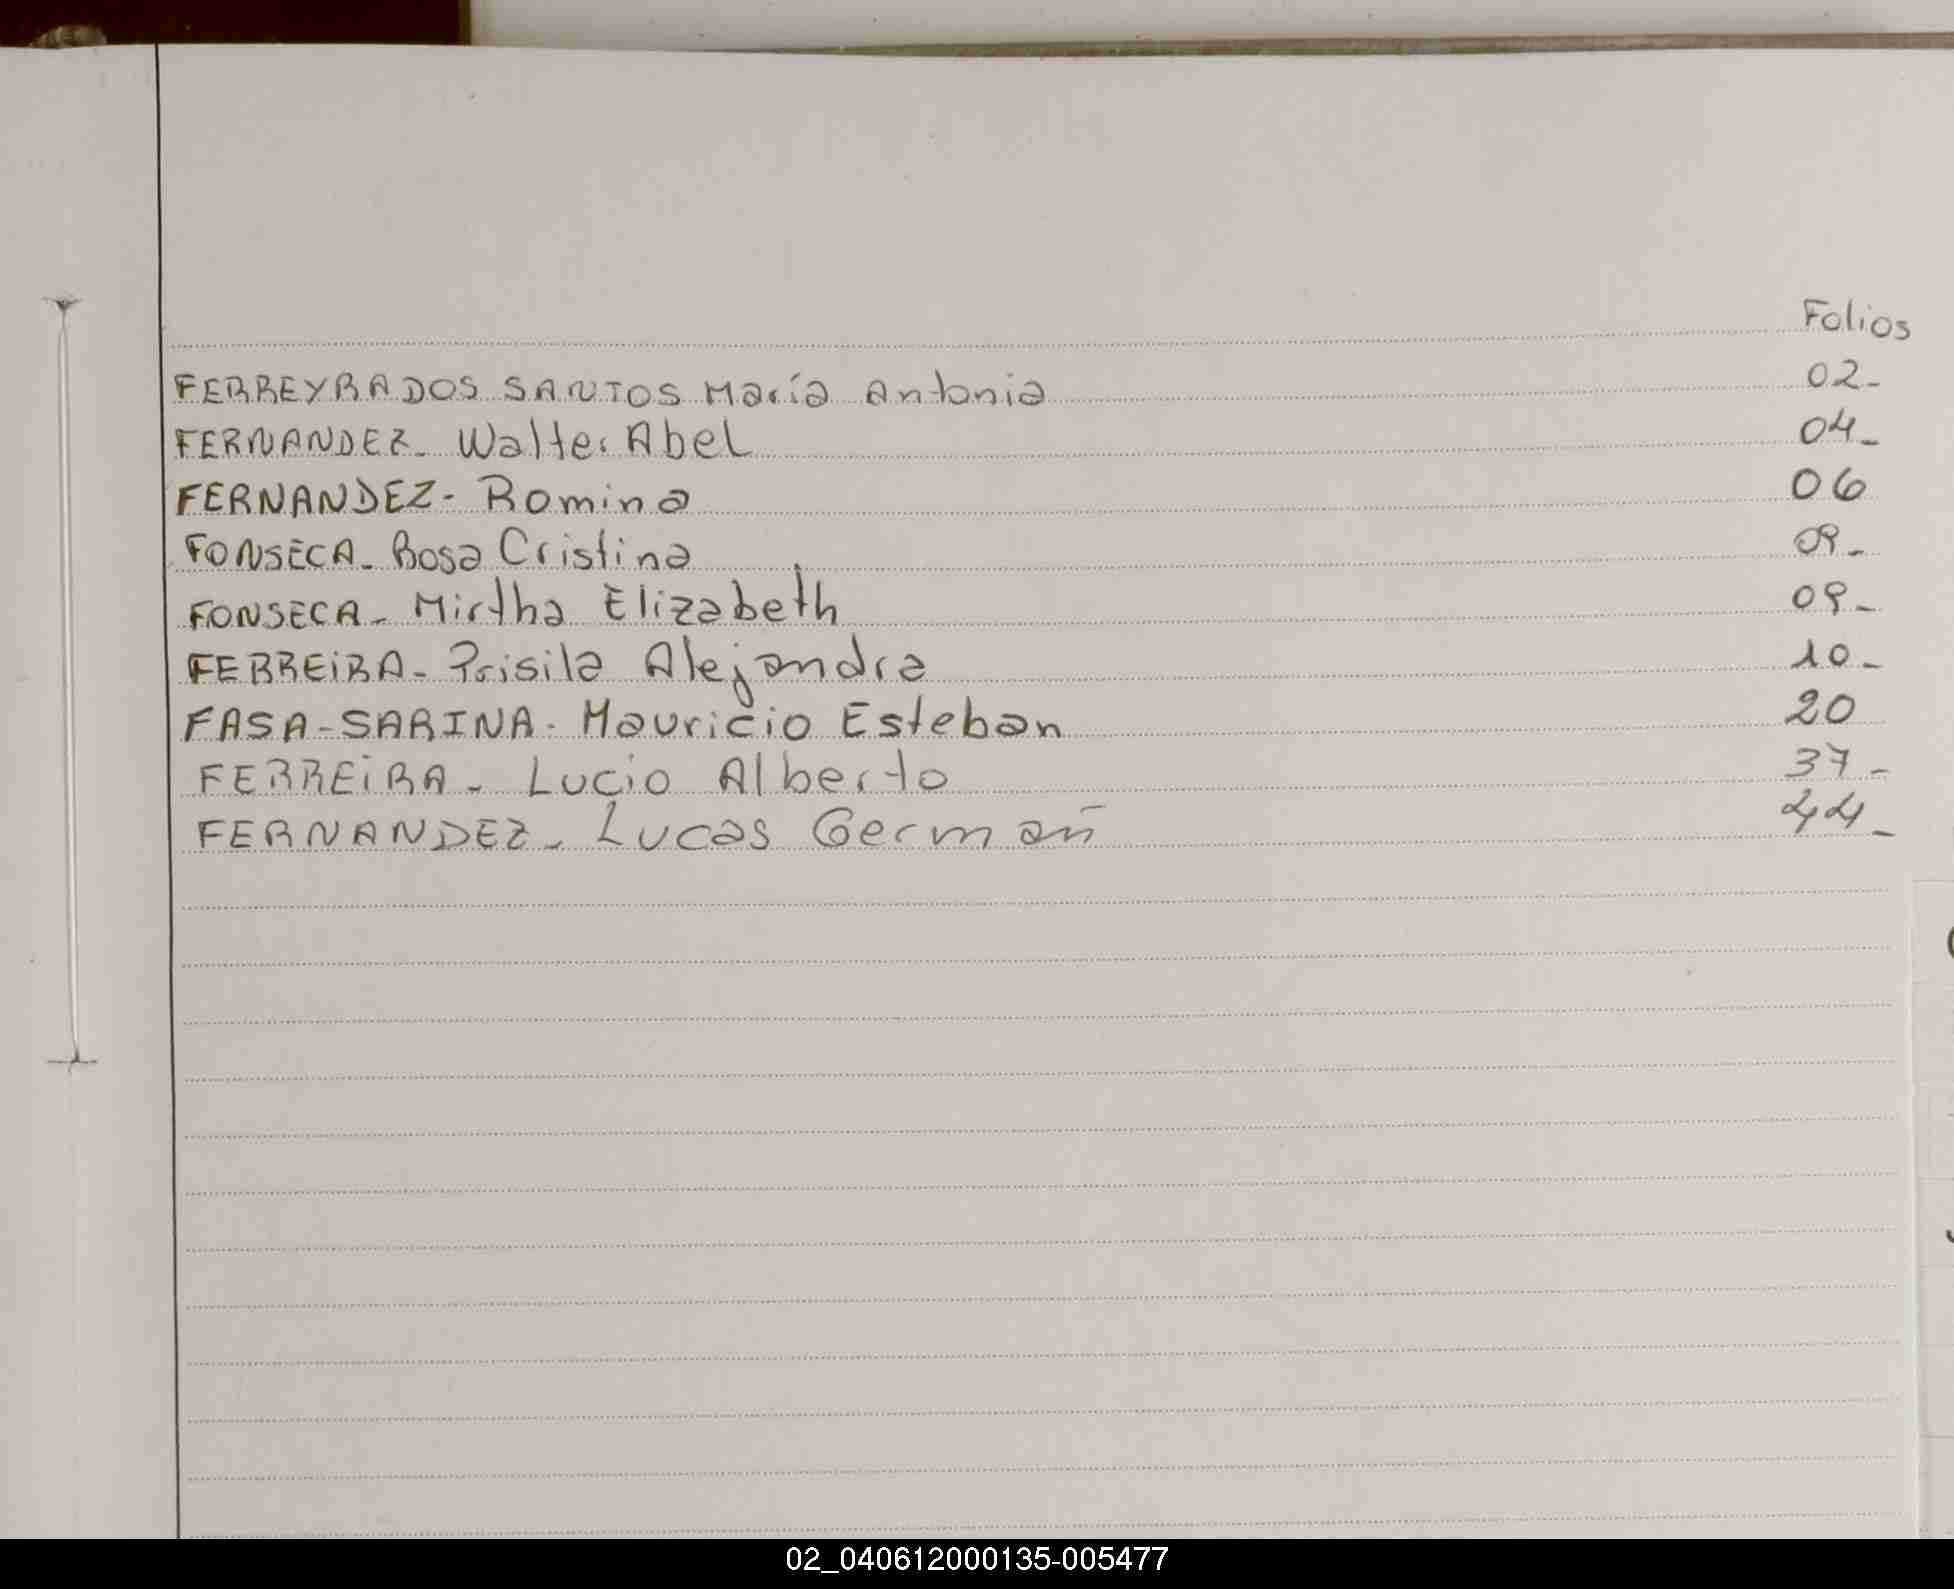 Folios
FERREYRA DOS SANTOS María Antonia 02-
FERNANDEZ- Walter Abel 04-
FERNANDEZ- Romina 06
FONSECA- Rosa Cristina 09-
FONSECA- Mirtha Elizabeth 09-
FERREiRA- Prisila Alejandra 10-
FASA-SARINA- Mauricio Esteban 20
FERREiRA- Lucio Alberto 37-
FERNANDEZ- Lucas Germán 44-
02_040612000135-005477